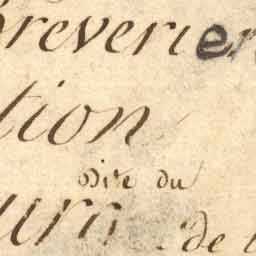 breverier
tion
Dire du
urn. de l